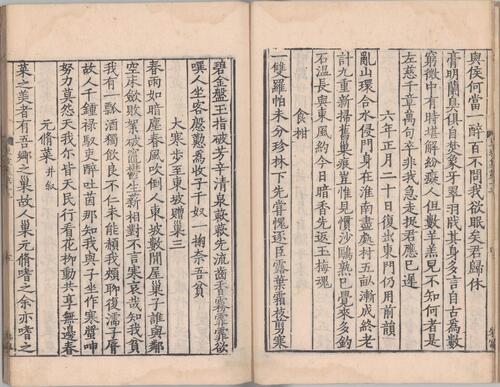 與侯何當一醉百不問我欲眠矣君歸休
膏明蘭臭俱自焚象牙翠羽戕其身多言自古為數
窮微中有時堪解紛癡人但數羊羔兒不知何者是
左慈千章萬句卒非我急走捉君應已遲
六年正月二十日復出東門仍用前韻
亂山環合水侵門身在淮南盡處村五畝漸成終老
計九重新掃舊巢痕豈惟見慣沙鷗熟已覺來多釣
石溫長與東風約今日暗香先返玉梅魂
食柑
一雙羅帕未分珍林下先嘗愧逐臣露葉霜枝剪寒
碧金盤玉指破芳辛清泉蔌蔌先流齒香霧霏霏欲
噀人坐客慇懃為收子千奴一掬奈吾貧
大寒步至東坡贈巢三
春雨如暗塵春風吹倒人東坡數間屋巢子誰與鄰
空床斂敗絮破竈鬱生薪相對不言寒哀哉知我貧
我有一瓢酒獨飲良不仁未能赬我頰聊復濡子脣
故人千鍾祿馭吏醉吐茵那知我與子坐作寒螿呻
努力莫怨天我尔皆天民行看花柳動共享無邊春
元脩菜 并叙
菜之美者有吾鄉之巢故人巢元脩嗜之余亦嗜之